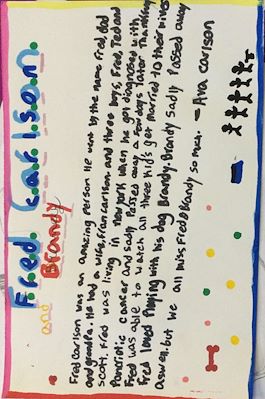 Fred Carlson
and Brandy
Fred Carlson was an amazing person He went by the name Fred, dad
and Grandpa. He had a wife, Fran Carlson and three boys, Fred, Ted and
Scott. Fred was living in New York when he got diagnosed with
Pancriotic cancer and sadly Passed away a few days later. Thankfully
Fred was able to watch all three kids get married to their wives
Fred loved Playing with his dog Brandy. Brandy sadly Passed away
aswell. but we all miss Fred & Brandy so much. - Ava Carlson